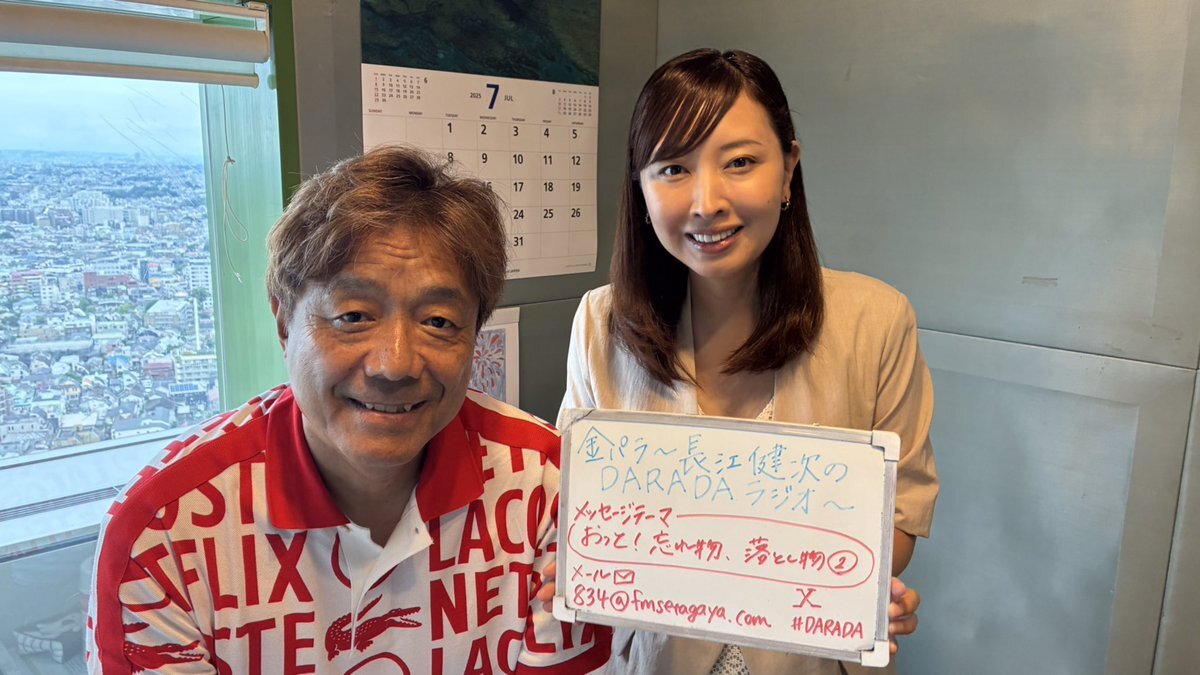 6
2025 7 JUL
8
SUNDAY MONDAY TUESDAY WEDNESDAY THURSDAY FRIDAY SATURDAY
1 2 3 4 5
8 9 10 11 12
17 18 19
24 25 26
31
金パラ～長江健次の
DARADAラジオ～
メッセージテーマ
おっと！忘れ物、落とし物②
メール
834@fmsetagaya.com
X
#DARADA
LACOS
TFLIX
NET
STE
LACO